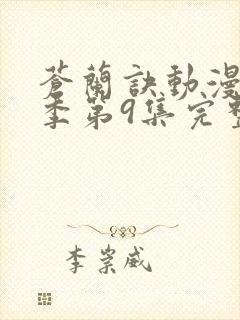 蒼蘭訣動漫
季第9集完整
李崇威